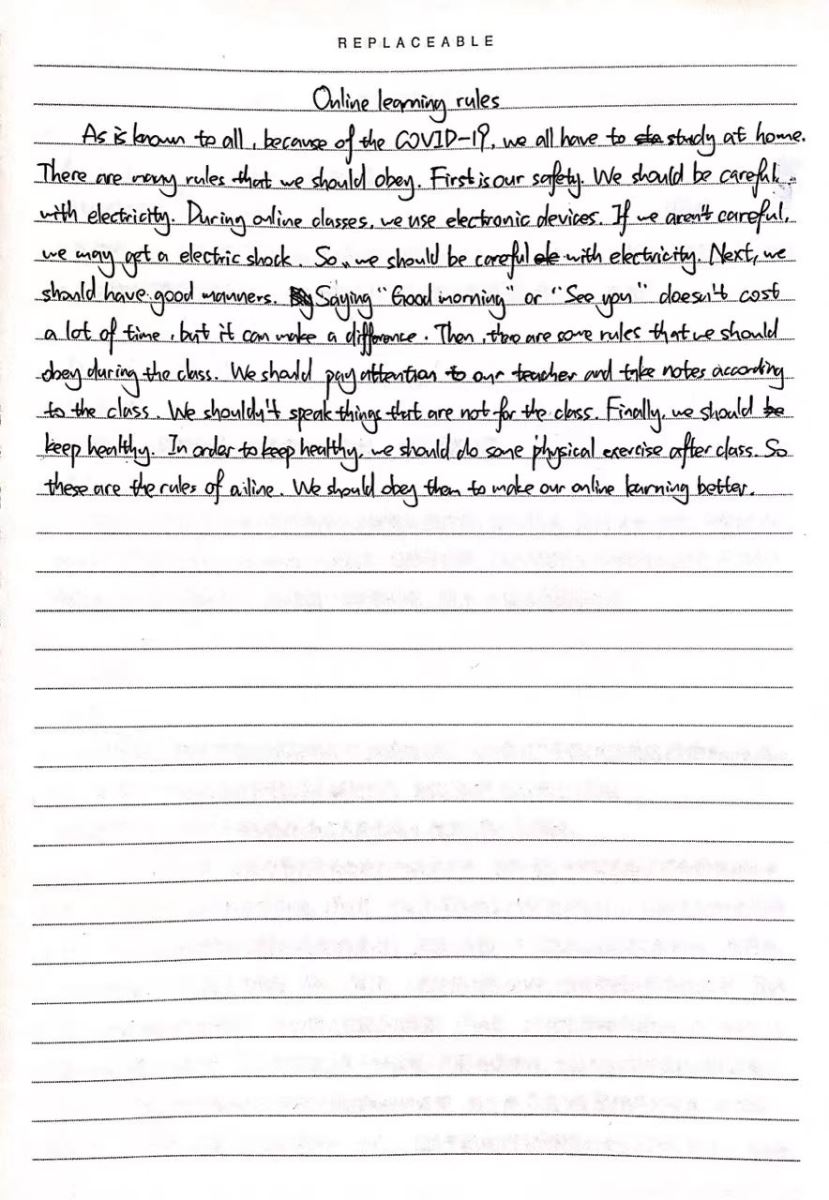 REPLACEABLE
Online learning rules
As is known to all, because of the COVID-19, we all have to study at home.
There are many rules that we should obey. First is our safety. We should be careful
with electricity. During online classes, we use electronic devices. If we aren't careful,
we may get a electric shock. So, we should be careful with electricity. Next, we
should have good manners. Saying "Good morning" or "See you" doesn't cost
a lot of time, but it can make a difference. Then, are some rules that we should
obey during the class. We should pay attention to our teacher and take notes according
to the class. We shouldn't speak things that are not for the class. Finally, we should
keep healthy. In order to keep healthy, we should do some physical exercise after class. So
these are the rules of. We should obey them to make our online learning better.